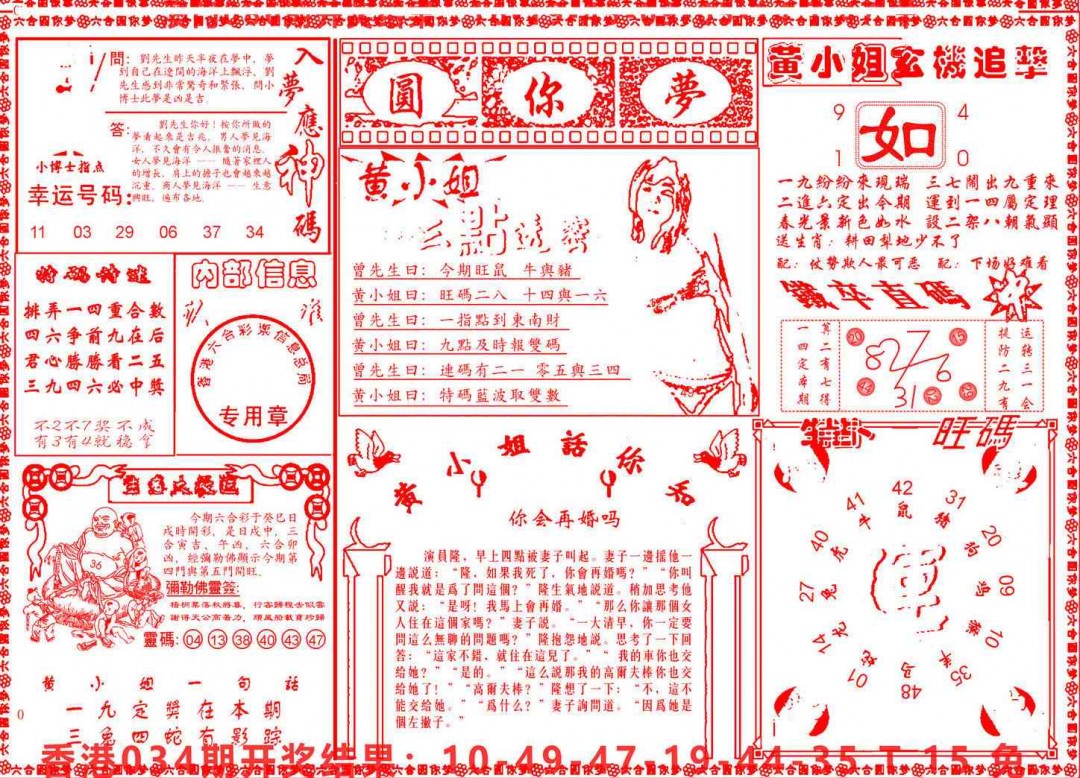 入夢應神碼
問：劉先生昨天半夜在夢中，夢
到自己在遼闊的海洋上飄浮，劉
先生感到非常驚奇和緊張，問小
博士此夢是凶是吉。
答：劉先生你好！按你所做的
夢看起來是吉兆，男人夢見海
洋，不久會有令人振奮的消息，
女人夢見海洋——隨著家裡人
的增長，肩上的擔子也會越來越
沉重，商人夢見海洋——生意
興旺，遍布各地。
小博士指点
幸运号码:
11 03 29 06 37 34
排弄一四重合數
四六爭前九在后
君心勝勝看二五
三九四六必中獎
不2不7奖不成
有3有4就穩拿
内部信息
香港六合彩票信息总局
专用章
今期六合彩于癸巳日
戌時開彩，是日戌中，三
合寅吉、午西、六合卯
西，經彌勒佛顯示今期第
四門與第五門開旺。
36
彌勒佛靈簽:
梧桐葉落秋將暮，行客歸程去似雲
謝得天公高著力，順風船載寶珍歸
靈碼: 04 13 38 40 43 47
黄小姐一句話
一九定獎在本期
三兔四蛇有影踪
圓你夢
黄小姐
點
曾先生曰：今期旺鼠 牛與豬
黄小姐曰：旺碼二八 十四與一六
曾先生曰：一指點到東南財
黄小姐曰：九點及時報雙碼
曾先生曰：連碼有二一 零五與三四
黄小姐曰：特碼藍波取雙數
黄小姐話你
你会再婚吗
演員隆，早上四點被妻子叫起。妻子一邊摇他一
邊説道：“隆，如果我死了，你會再婚嗎？”“你叫
醒我就是爲了問這個？”隆生氣地説道。稍加思考他
又説：“是呀！我馬上會再婚。”“那么你讓那個女
人住在這個家嗎？”妻子説。“一大清早，你一定要
問這么無聊的問題嗎？”隆抱怨地説。思考了一下回
答：“這家不錯，就住在這兒了。”“我的車你也交
給她？”“是的。”“這么説那我的高爾夫棒你也交
給她了！”“高爾夫棒？”隆想了一下：“不，這不
能交給她。”“爲什么？”妻子詢問道。“因爲她是
個左撇子。”
黃小姐玄機追擊
9 4
如
1 0
一九紛紛來現瑞 三七開出九重來
二進六定出令期 運到一四屬定理
春光景新色如水 設二架八朝氣顯
送生肖：耕田犁地少不了
配：仗勢欺人最可惡 配：下场好难看
鐵卒直碼
算二有七得
一四定本期
运转三一会
提防二九有
20
15
31
旺碼
42 鼠
31 豬
20
09
10
35 羊
48 馬
01 蛇
14 龙
27 兔
40 虎
41 牛
香港034期开奖结果：10-49-47-19-44-35-T-15 兔